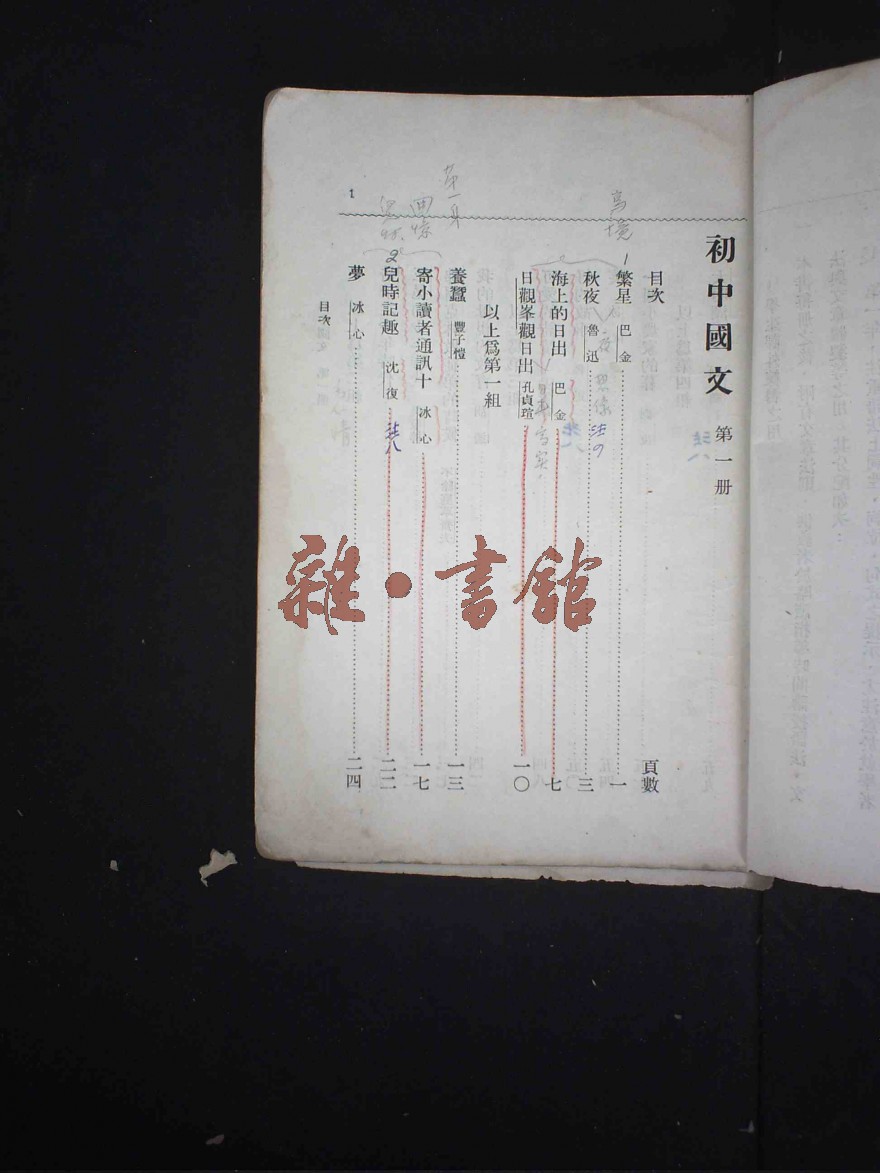 初中國文 第一册
目次 頁數
1 繁星 巴金 一
秋夜 魯迅 三
海上的日出 巴金 七
日觀峯觀日出 孔貞瑄 一〇
以上爲第一組
養蠶 豐子愷 一三
寄小讀者通訊十 冰心 一七
2 兒時記趣 沈復 二二
夢 冰心 二四
目次
1
寫境
第一身
回憶
雜·書館